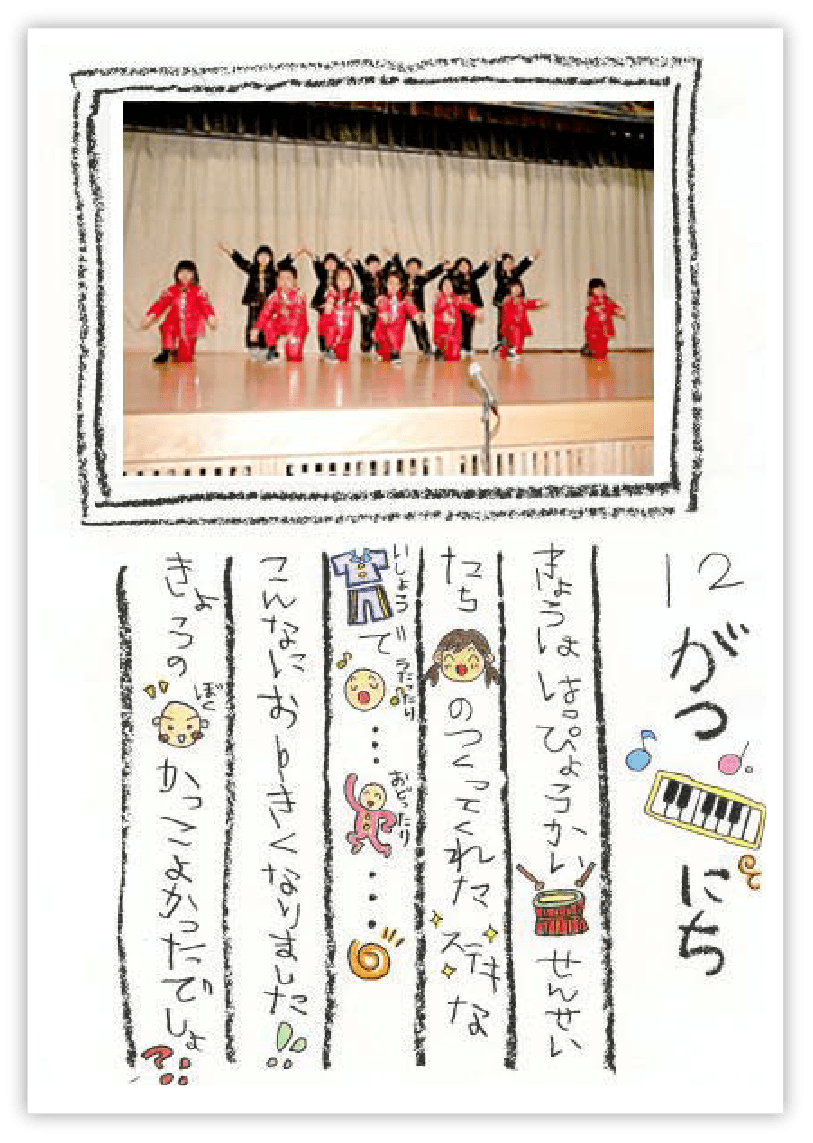 12がつ にち
きょうは はっぴょうかい せんせい
たち のつくってくれた ステキな
いしょう で うたったり ・・・ おどったり ・・・・
こんなにおおきくなりました!!
きょうの ぼく かっこよかったでしょ?!